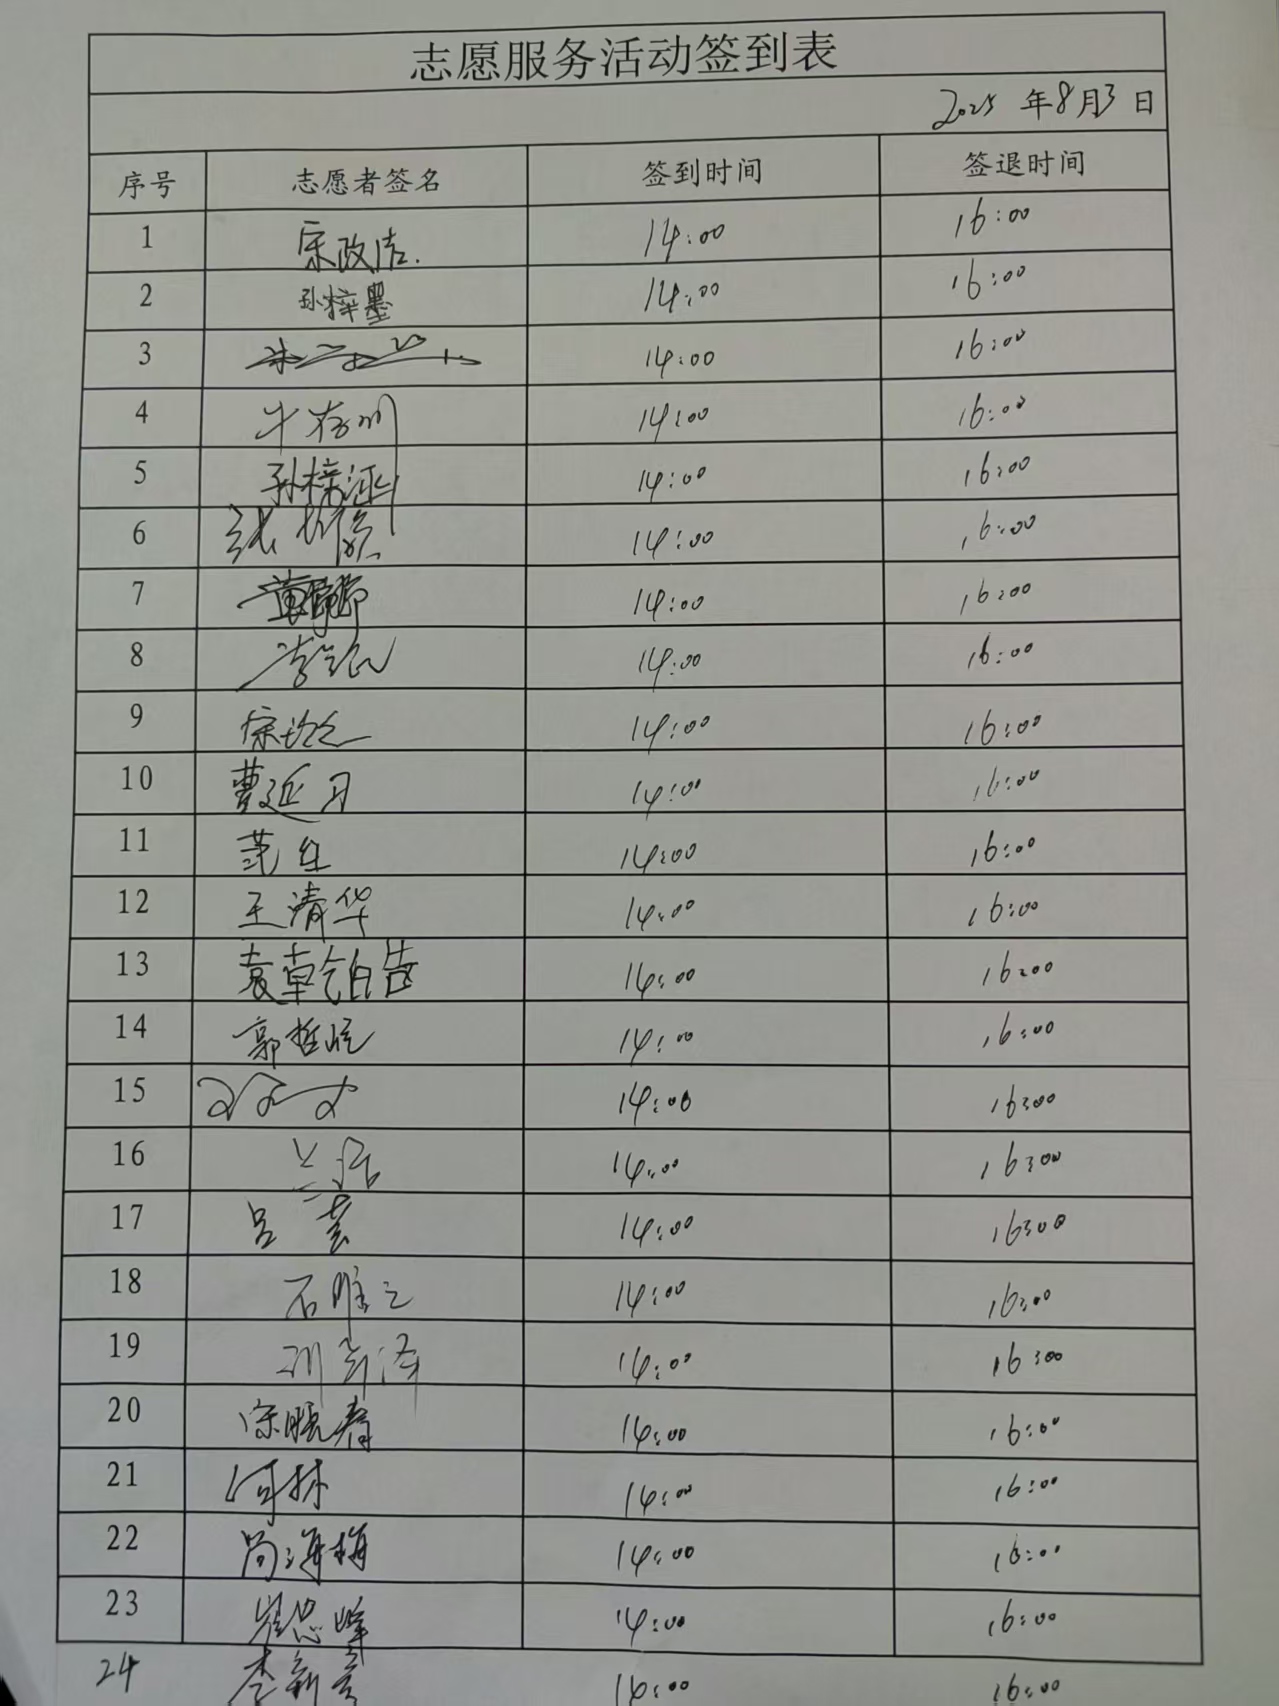 志愿服务活动签到表
2025 年 8 月 3 日
序号 志愿者签名 签到时间 签退时间
1 宋政洁. 14:00 16:00
2 孙梓墨 14:00 16:00
3 14:00 16:00
4 牛存川 14:00 16:00
5 孙梓涵 14:00 16:00
6 张 14:00 16:00
7 黄 14:00 16:00
8 李 14:00 16:00
9 14:00 16:00
10 曹延月 14:00 16:00
11 范红 14:00 16:00
12 王清华 14:00 16:00
13 袁 14:00 16:00
14 郭哲 14:00 16:00
15 14:00 16:00
16 兰 14:00 16:00
17 吕 14:00 16:00
18 石 14:00 16:00
19 14:00 16:00
20 宋晓春 14:00 16:00
21 何林 14:00 16:00
22 尚海梅 14:00 16:00
23 崔思峰 14:00 16:00
24 李新 16:00